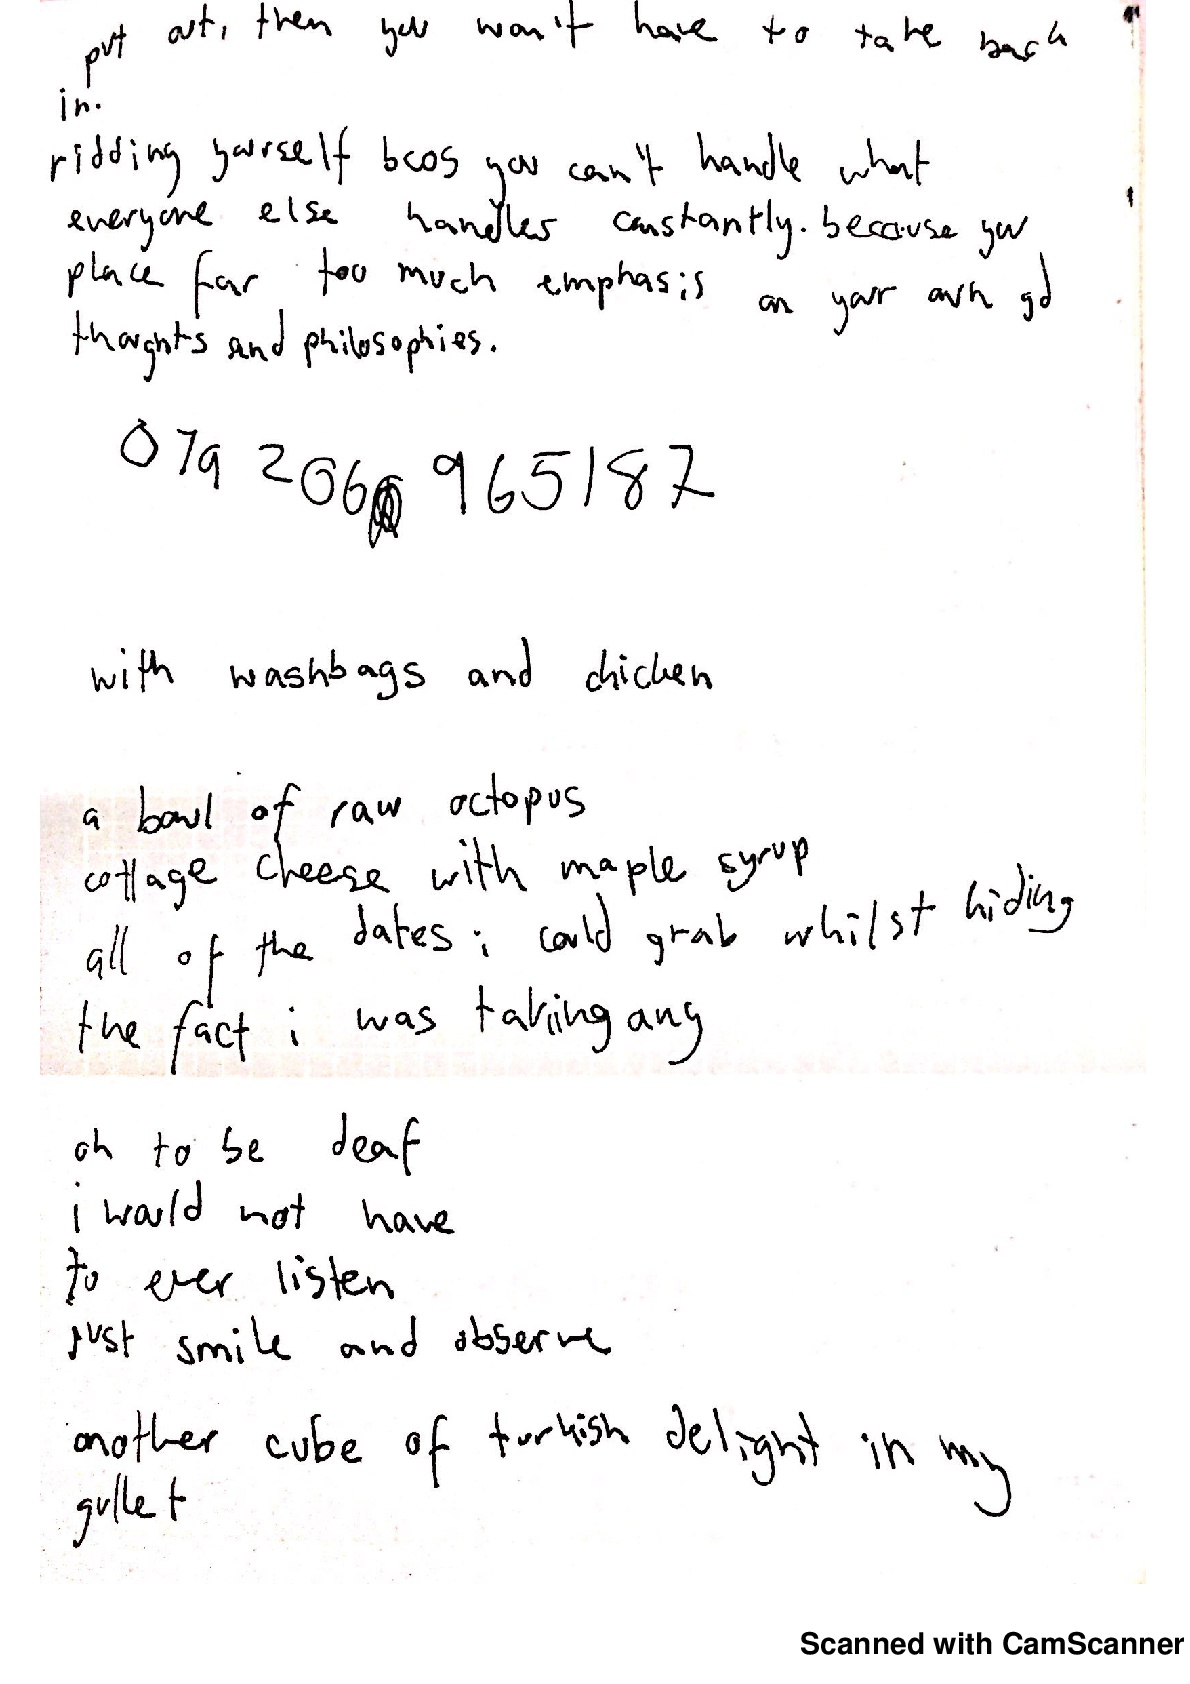 put out, then you won't have to take back
in.
ridding yourself bcos you can't handle what
everyone else handles constantly. because you
place far too much emphasis on your own gd
thoughts and philosophies.
079 206 965187
with washbags and chicken
a bowl of raw octopus
cottage cheese with maple syrup
all of the dates i could grab whilst hiding
the fact i was taking any
oh to be deaf
i would not have
to ever listen
just smile and observe
another cube of turkish delight in my
gullet
Scanned with CamScanner